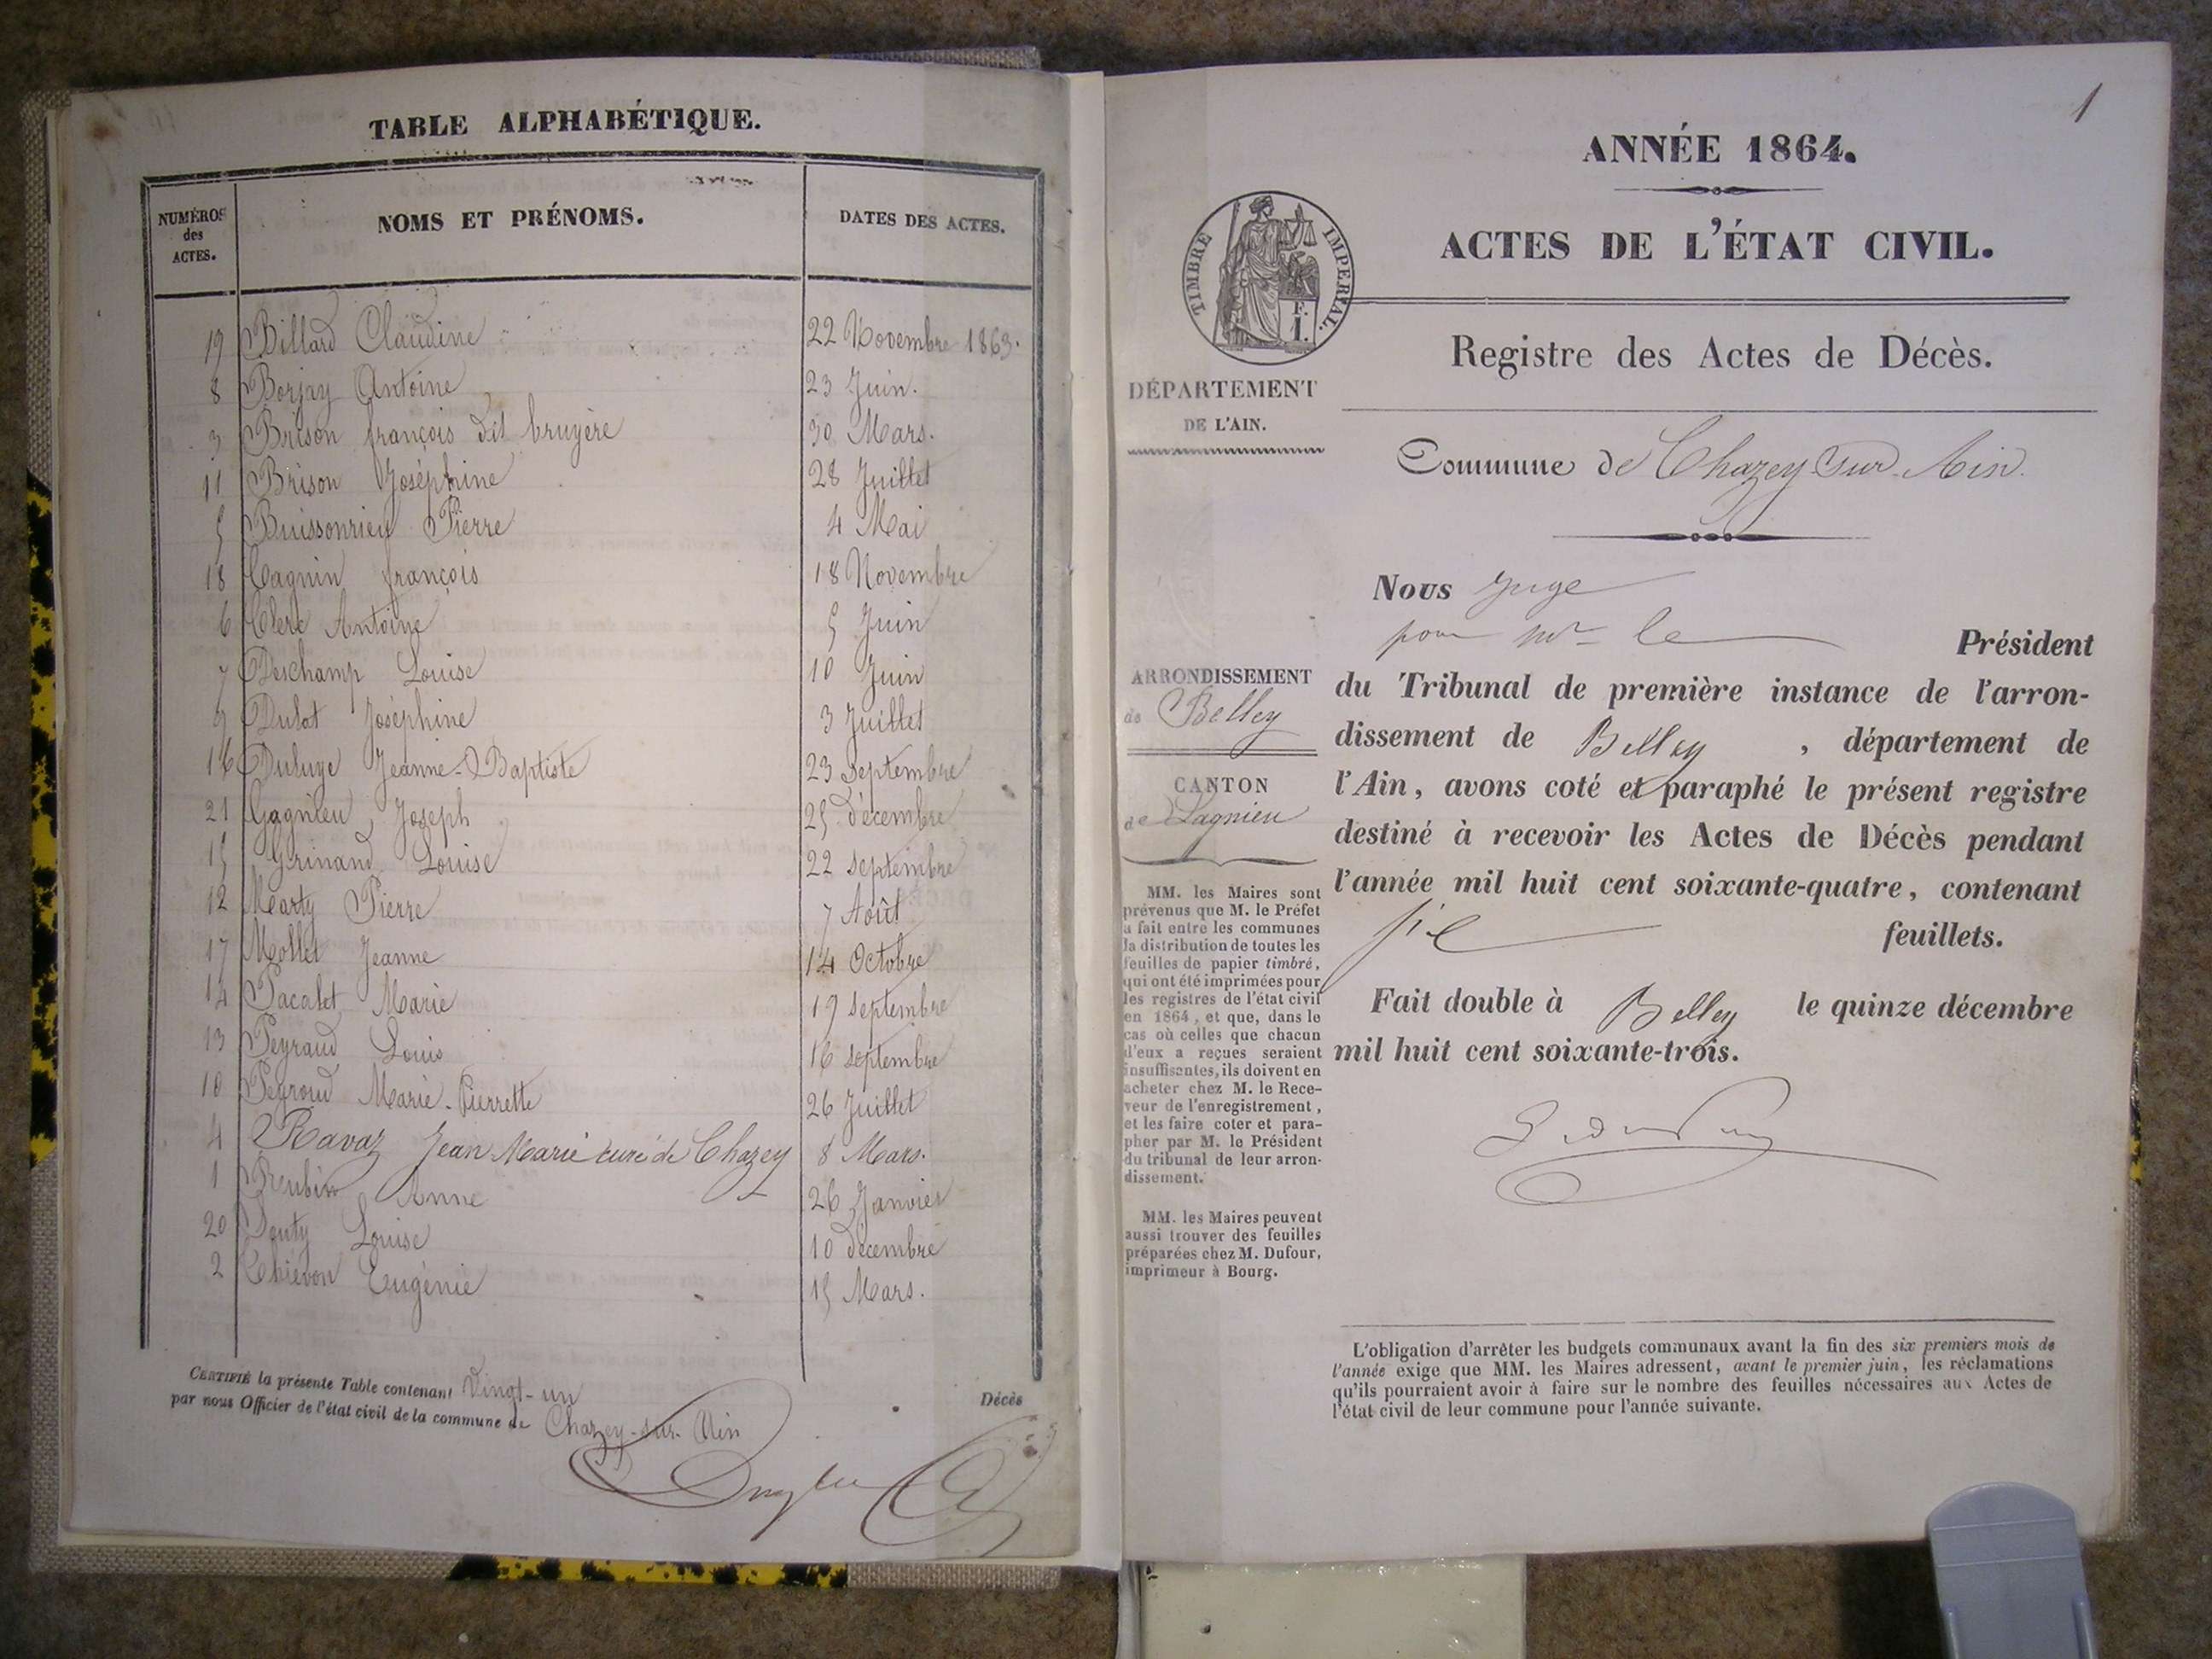 TABLE ALPHABÉTIQUE.
NUMÉROS des ACTES.
NOMS ET PRÉNOMS.
DATES DES ACTES.
19 Billard Claudine 22 Novembre 1863.
8 Borjay Antoine 23 Juin.
3 Brison françois dit bruyère 30 Mars.
11 Brison Joséphine 28 Juillet
5 Buissonrieu Pierre 4 Mai
18 Cagnin françois 18 Novembre
6 Clerc Antoine 5 Juin
7 Deschamp Louise 10 Juin
9 Dulot Joséphine 3 Juillet
16 Duluye Jeanne-Baptiste 23 Septembre
21 Gagnieu Joseph 25 décembre
15 Grinand Louise 22 septembre
12 Marty Pierre 7 Août
17 Mollet Jeanne 14 Octobre
14 Pacalet Marie 19 septembre
13 Peyraud Louis 16 septembre
10 Peyroud Marie-Pierrette 26 Juillet
4 Ravaz Jean Marie curé de Chazey 8 Mars.
1 Reubin Anne 26 Janvier
20 Louise 10 décembre
2 Thiévon Eugénie 15 Mars.
CERTIFIÉ la présente Table contenant Vingt-un Décès
par nous Officier de l'état civil de la commune de Chazey-sur-Ain
1
ANNÉE 1864.
ACTES DE L'ÉTAT CIVIL.
TIMBRE IMPERIAL.
F. 1.
Registre des Actes de Décès.
DÉPARTEMENT
DE L'AIN.
Commune de Chazey sur Ain.
Nous Juge
pour Mr le Président
ARRONDISSEMENT
de Belley
CANTON
de Lagnieu
du Tribunal de première instance de l'arron-
dissement de Belley, département de
l'Ain, avons coté et paraphé le présent registre
destiné à recevoir les Actes de Décès pendant
l'année mil huit cent soixante-quatre, contenant
feuillets.
Fait double à Belley le quinze décembre
mil huit cent soixante-trois.
MM. les Maires sont
prévenus que M. le Préfet
a fait entre les communes
la distribution de toutes les
feuilles de papier timbré,
qui ont été imprimées pour
les registres de l'état civil
en 1864, et que, dans le
cas où celles que chacun
d'eux a reçues seraient
insuffisantes, ils doivent en
acheter chez M. le Rece-
veur de l'enregistrement,
et les faire coter et para-
pher par M. le Président
du tribunal de leur arron-
dissement.
MM. les Maires peuvent
aussi trouver des feuilles
préparées chez M. Dufour,
imprimeur à Bourg.
L'obligation d'arrêter les budgets communaux avant la fin des six premiers mois de
l'année exige que MM. les Maires adressent, avant le premier juin, les réclamations
qu'ils pourraient avoir à faire sur le nombre des feuilles nécessaires aux Actes de
l'état civil de leur commune pour l'année suivante.